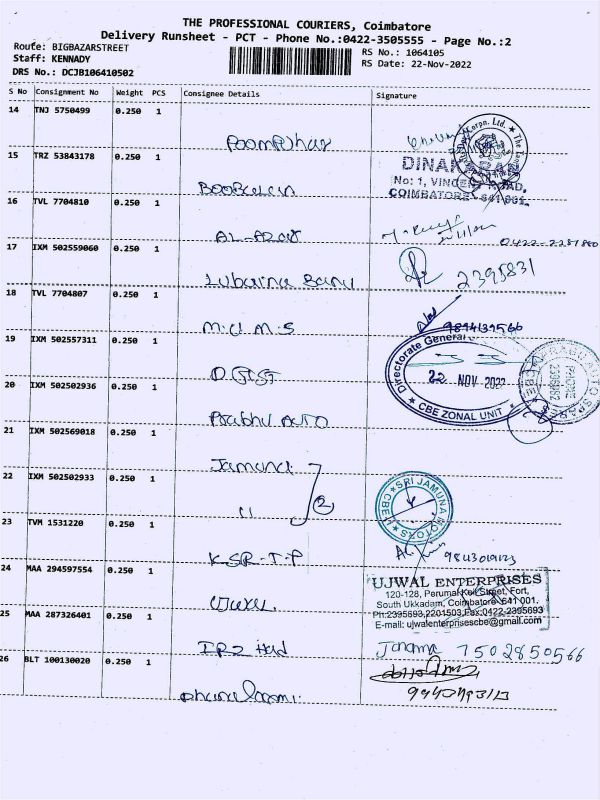 THE PROFESSIONAL COURIERS, Coimbatore
Delivery Runsheet - PCT - Phone No.:0422-3505555 - Page No.:2
Route: BIGBAZARSTREET
RS No.: 1064105
Staff: KENNADY
RS Date: 22-Nov-2022
DRS No.: DCJB106410502
S No Consignment No Weight PCS Consignee Details Signature
14 TNJ 5750499 0.250 1
Poompuhar
15 TRZ 53843178 0.250 1
DINAKARAN
No: 1, VINCENT ROAD,
COIMBATORE - 641 001.
16 TVL 7704810 0.250 1
AL-
0422-2287880
17 IXM 502559060 0.250 1
Lubaina Banu
2395831
18 TVL 7704807 0.250 1
M.U.M.S
9894139566
19 IXM 502557311 0.250 1
D GST
Directorate General
22 NOV 2022
CBE ZONAL UNIT
20 IXM 502502936 0.250 1
Prabhu Auto
21 IXM 502569018 0.250 1
Jamuna
22 IXM 502502933 0.250 1
11 2
SRI JAMUNA MOTORS CBE
23 TVM 1531220 0.250 1
K.S.R.T.P
9843019123
24 MAA 294597554 0.250 1
UJWAL ENTERPRISES
120-128, Perumal Koil Street, Fort,
South Ukkadam, Coimbatore - 641 001.
Ph:2395693,2201503,Fax:0422-2395693
E-mail: ujwalenterprisescbe@gmail.com
25 MAA 287326401 0.250 1
7502850566
26 BLT 100130020 0.250 1